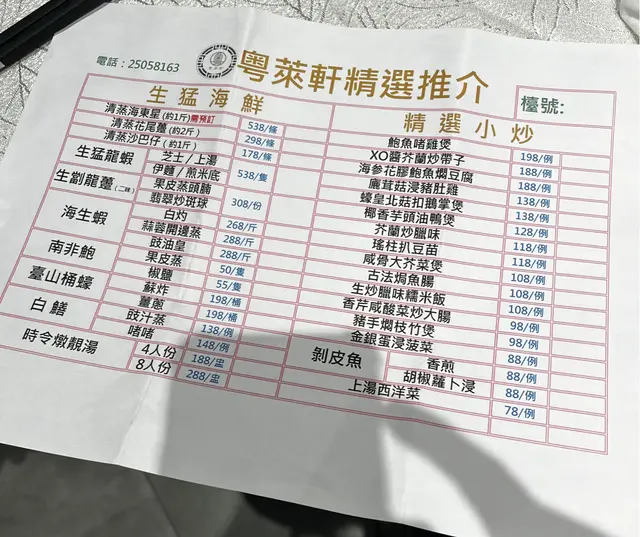 電話：25058163
粵萊軒精選推介
檯號:
生猛海鮮
清蒸海東星(約1斤)需預訂 538/條
清蒸花尾躉(約2斤) 298/條
清蒸沙巴仔(約1斤) 178/條
生猛龍蝦 芝士/上湯 538/隻
伊麵/煎米底
生劏龍躉(二味) 果皮蒸頭腩 308/份
翡翠炒班球
海生蝦 白灼 268/斤
蒜蓉開邊蒸 288/斤
豉油皇 288/斤
南非鮑 果皮蒸 50/隻
椒鹽 55/隻
臺山桶蠔 酥炸 198/桶
薑蔥 198/桶
白鱔 豉汁蒸 138/例
啫啫 148/例
時令燉靚湯 4人份 188/盅
8人份 288/盅
精選小炒
鮑魚啫雞煲 198/例
XO醬芥蘭炒帶子 188/例
海參花膠鮑魚燜豆腐 188/例
茸菇浸豬肚雞 138/例
蠔皇北菇扣鵝掌煲 138/例
椰香芋頭油鴨煲 128/例
芥蘭炒臘味 118/例
瑤柱扒豆苗 118/例
咸骨大芥菜煲 108/例
古法焗魚腸 108/例
生炒臘味糯米飯 108/例
香芹咸酸菜炒大腸 98/例
豬手燜枝竹煲 98/例
金銀蛋浸菠菜 88/例
剝皮魚 香煎 88/例
胡椒蘿卜浸 88/例
上湯西洋菜 78/例